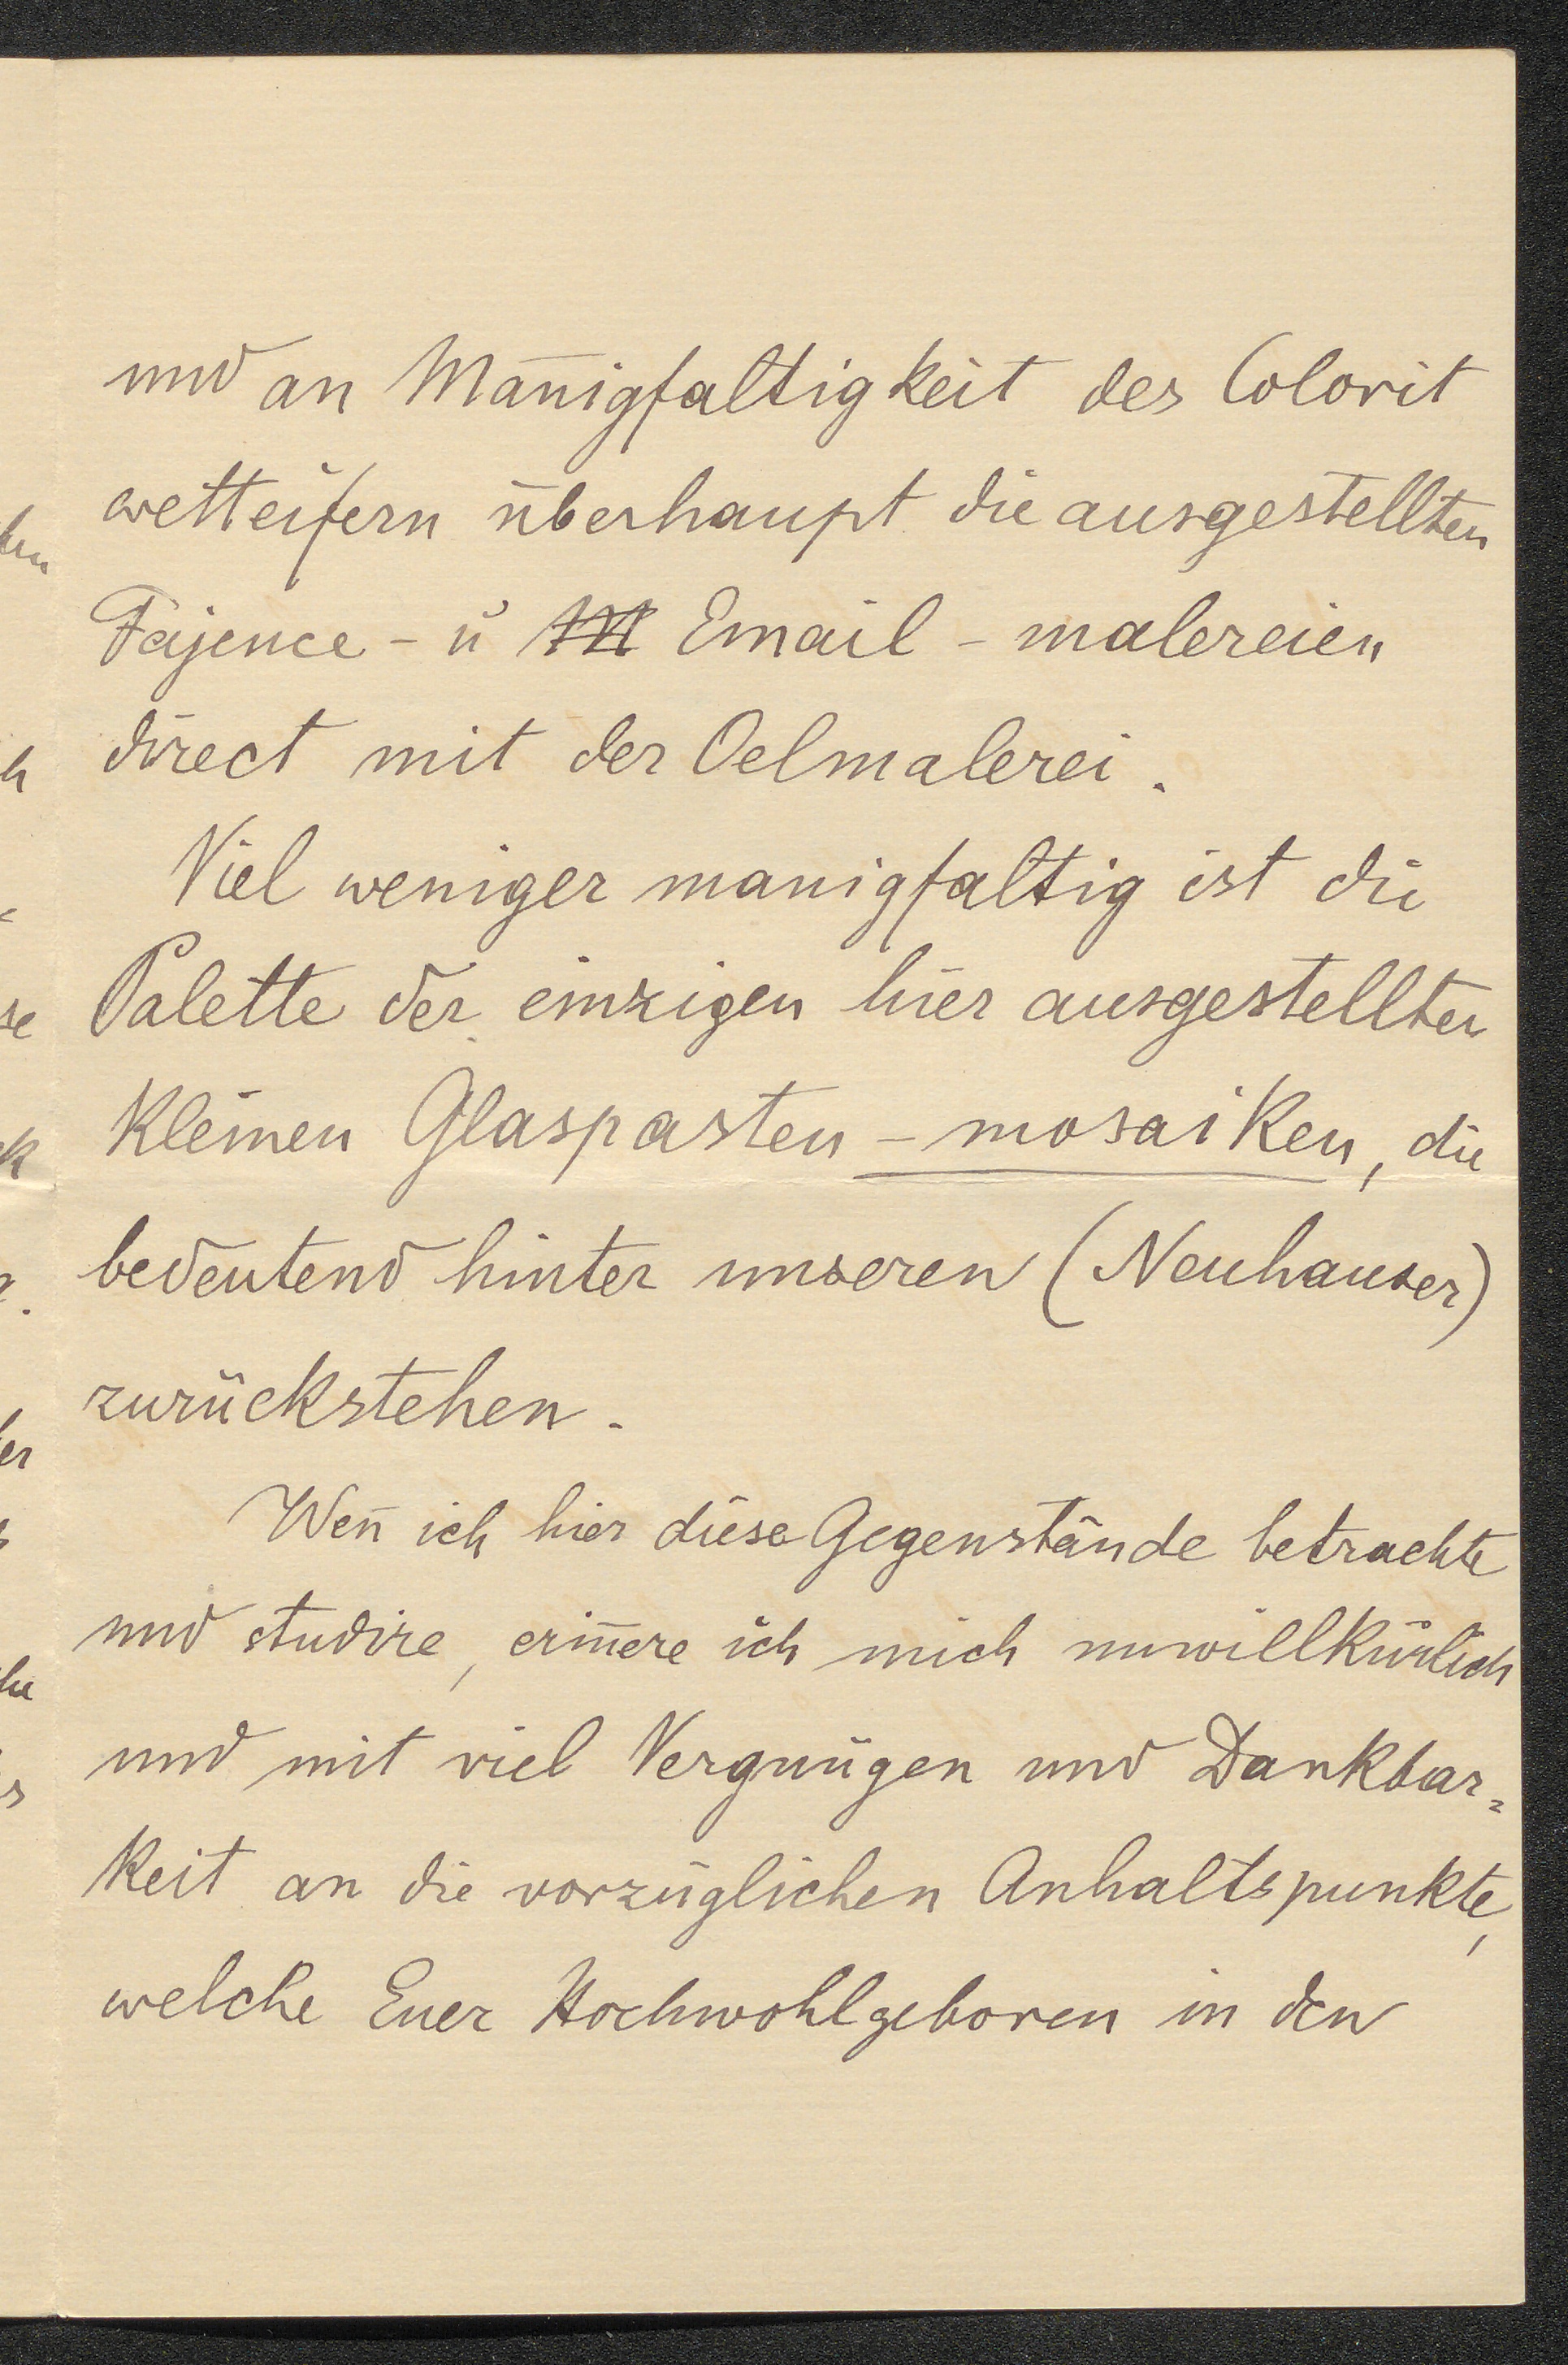 und an Man̄igfaltigkeit des Colorit
wetteifern überhaupt die ausgestellten
Fajence - u Email - malereien
direct mit der Oelmalerei.
Viel weniger manigfaltig ist die
Palette der einzigen hier ausgestellten
kleinen Glaspasten - mosaiken, die
bedeutend hinter unseren (Neuhauser)
zurückstehen.
Wen̄ ich hier diese Gegenstände betrachte
und studire, erin̄ere ich mich unwillkürlich
und mit viel Vergnügen und Dankbar=
keit an die vorzüglichen Anhaltspunkte,
welche Euer Hochwohlgeboren in den